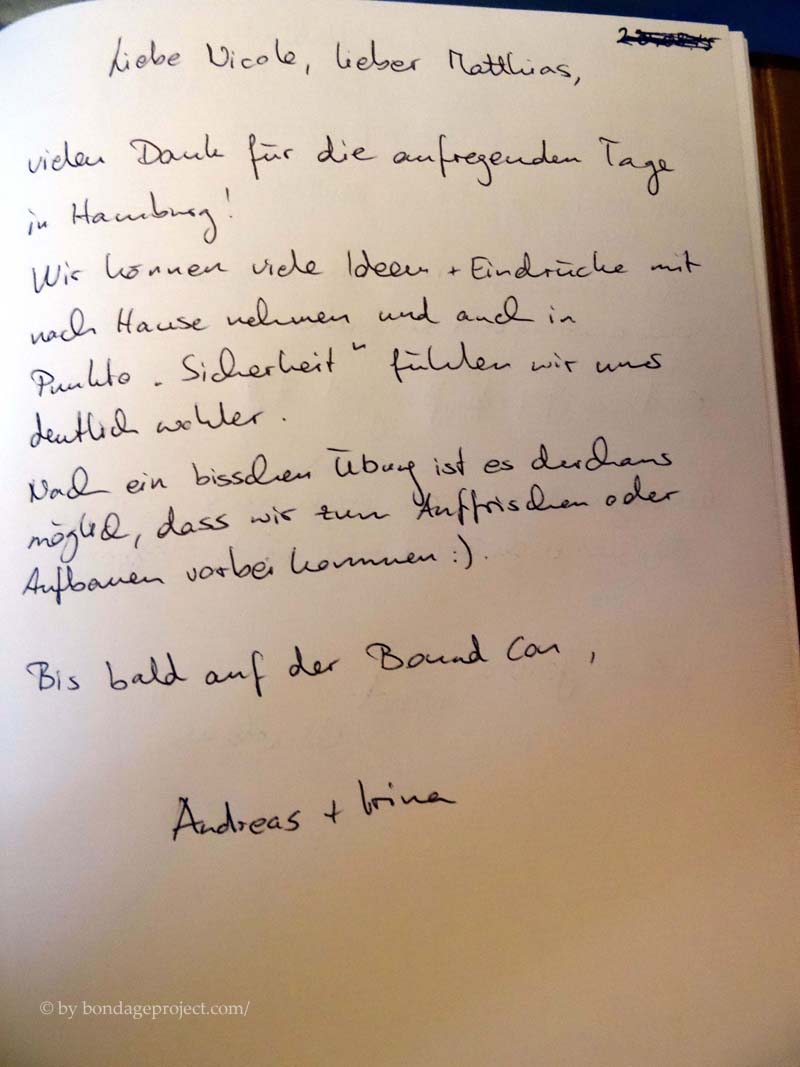 Liebe Nicole, lieber Matthias,
vielen Dank für die aufregenden Tage
in Hamburg!
Wir können viele Ideen + Eindrücke mit
nach Hause nehmen und auch in
Punkto "Sicherheit" fühlen wir uns
deutlich wohler.
Nach ein bisschen Übung ist es durchaus
möglich, dass wir zum Auffrischen oder
Aufbauen vorbei kommen :).
Bis bald auf der Bound Con,
Andreas + Irina
© by bondageproject.com/